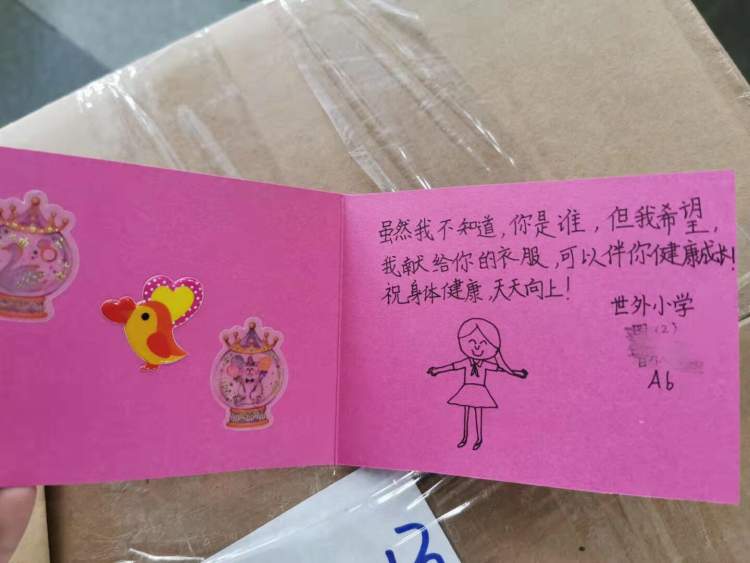 虽然我不知道,你是谁,但我希望,
我献给你的衣服,可以伴你健康成长!
祝身体健康,天天向上!
世外小学
(2)
A6